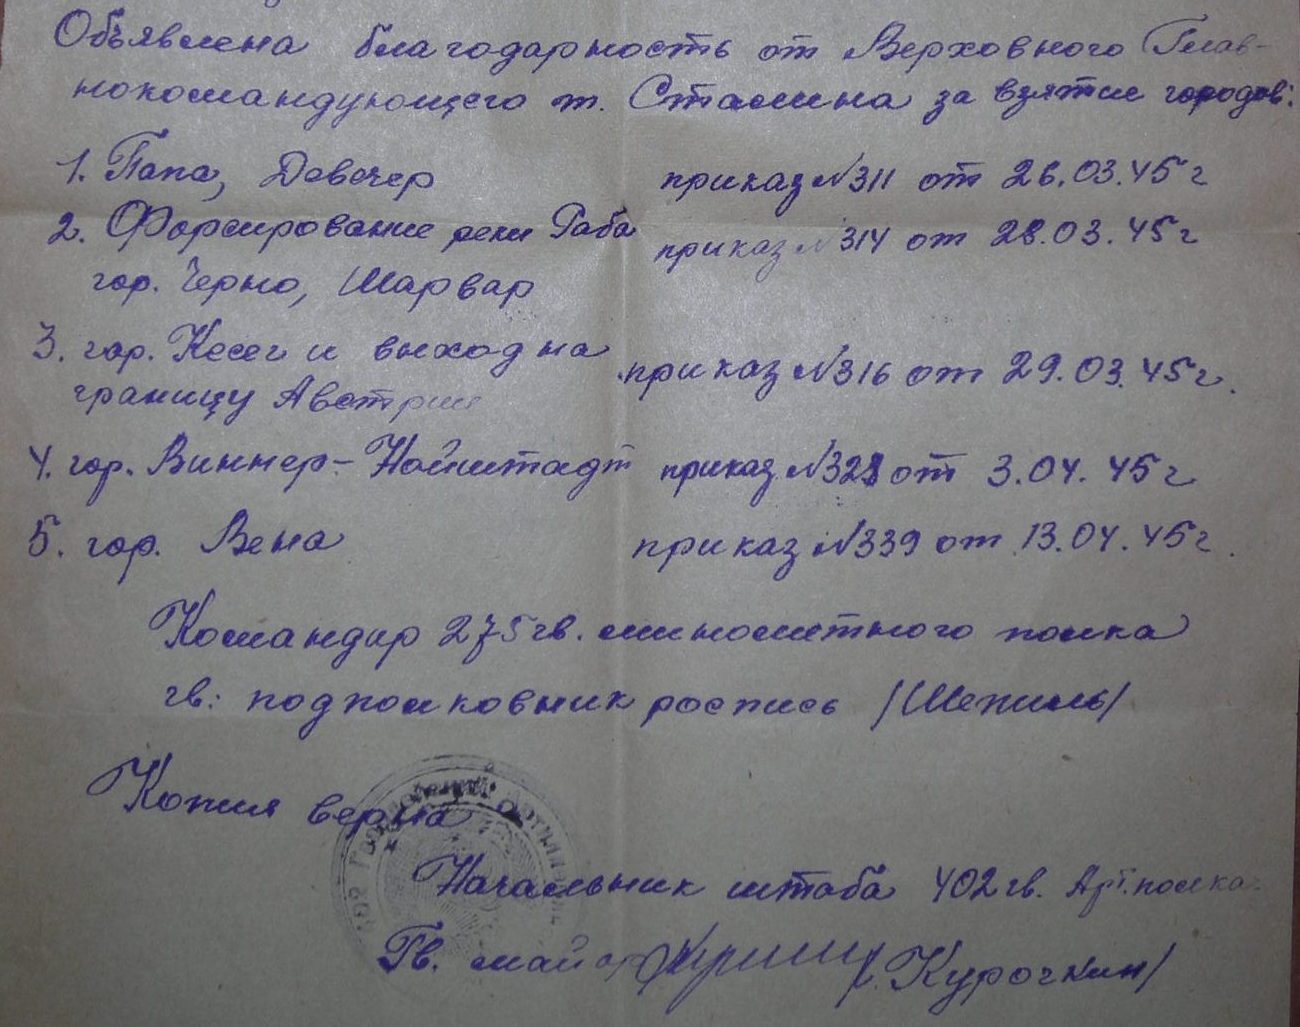 Объявлена благодарность от Верховного Глав-
нокомандующего т. Сталина за взятие городов:
1. Папа, Девечер приказ №311 от 26.03.45г
2. Форсирование реки Раба приказ №314 от 28.03.45г
гор. Черно, Шарвар
3. гор. Кесег и выход на приказ №316 от 29.03.45г.
границу Австрии
4. гор. Виннер-Нойштадт приказ №328 от 3.04.45г
5. гор. Вена приказ №339 от 13.04.45г.
Командир 275 гв. минометного полка
гв: подполковник роспись /Шепиль/
Копия верна
Начальник штаба 402 гв. Арт. полка
Гв. майор /Курочкин/